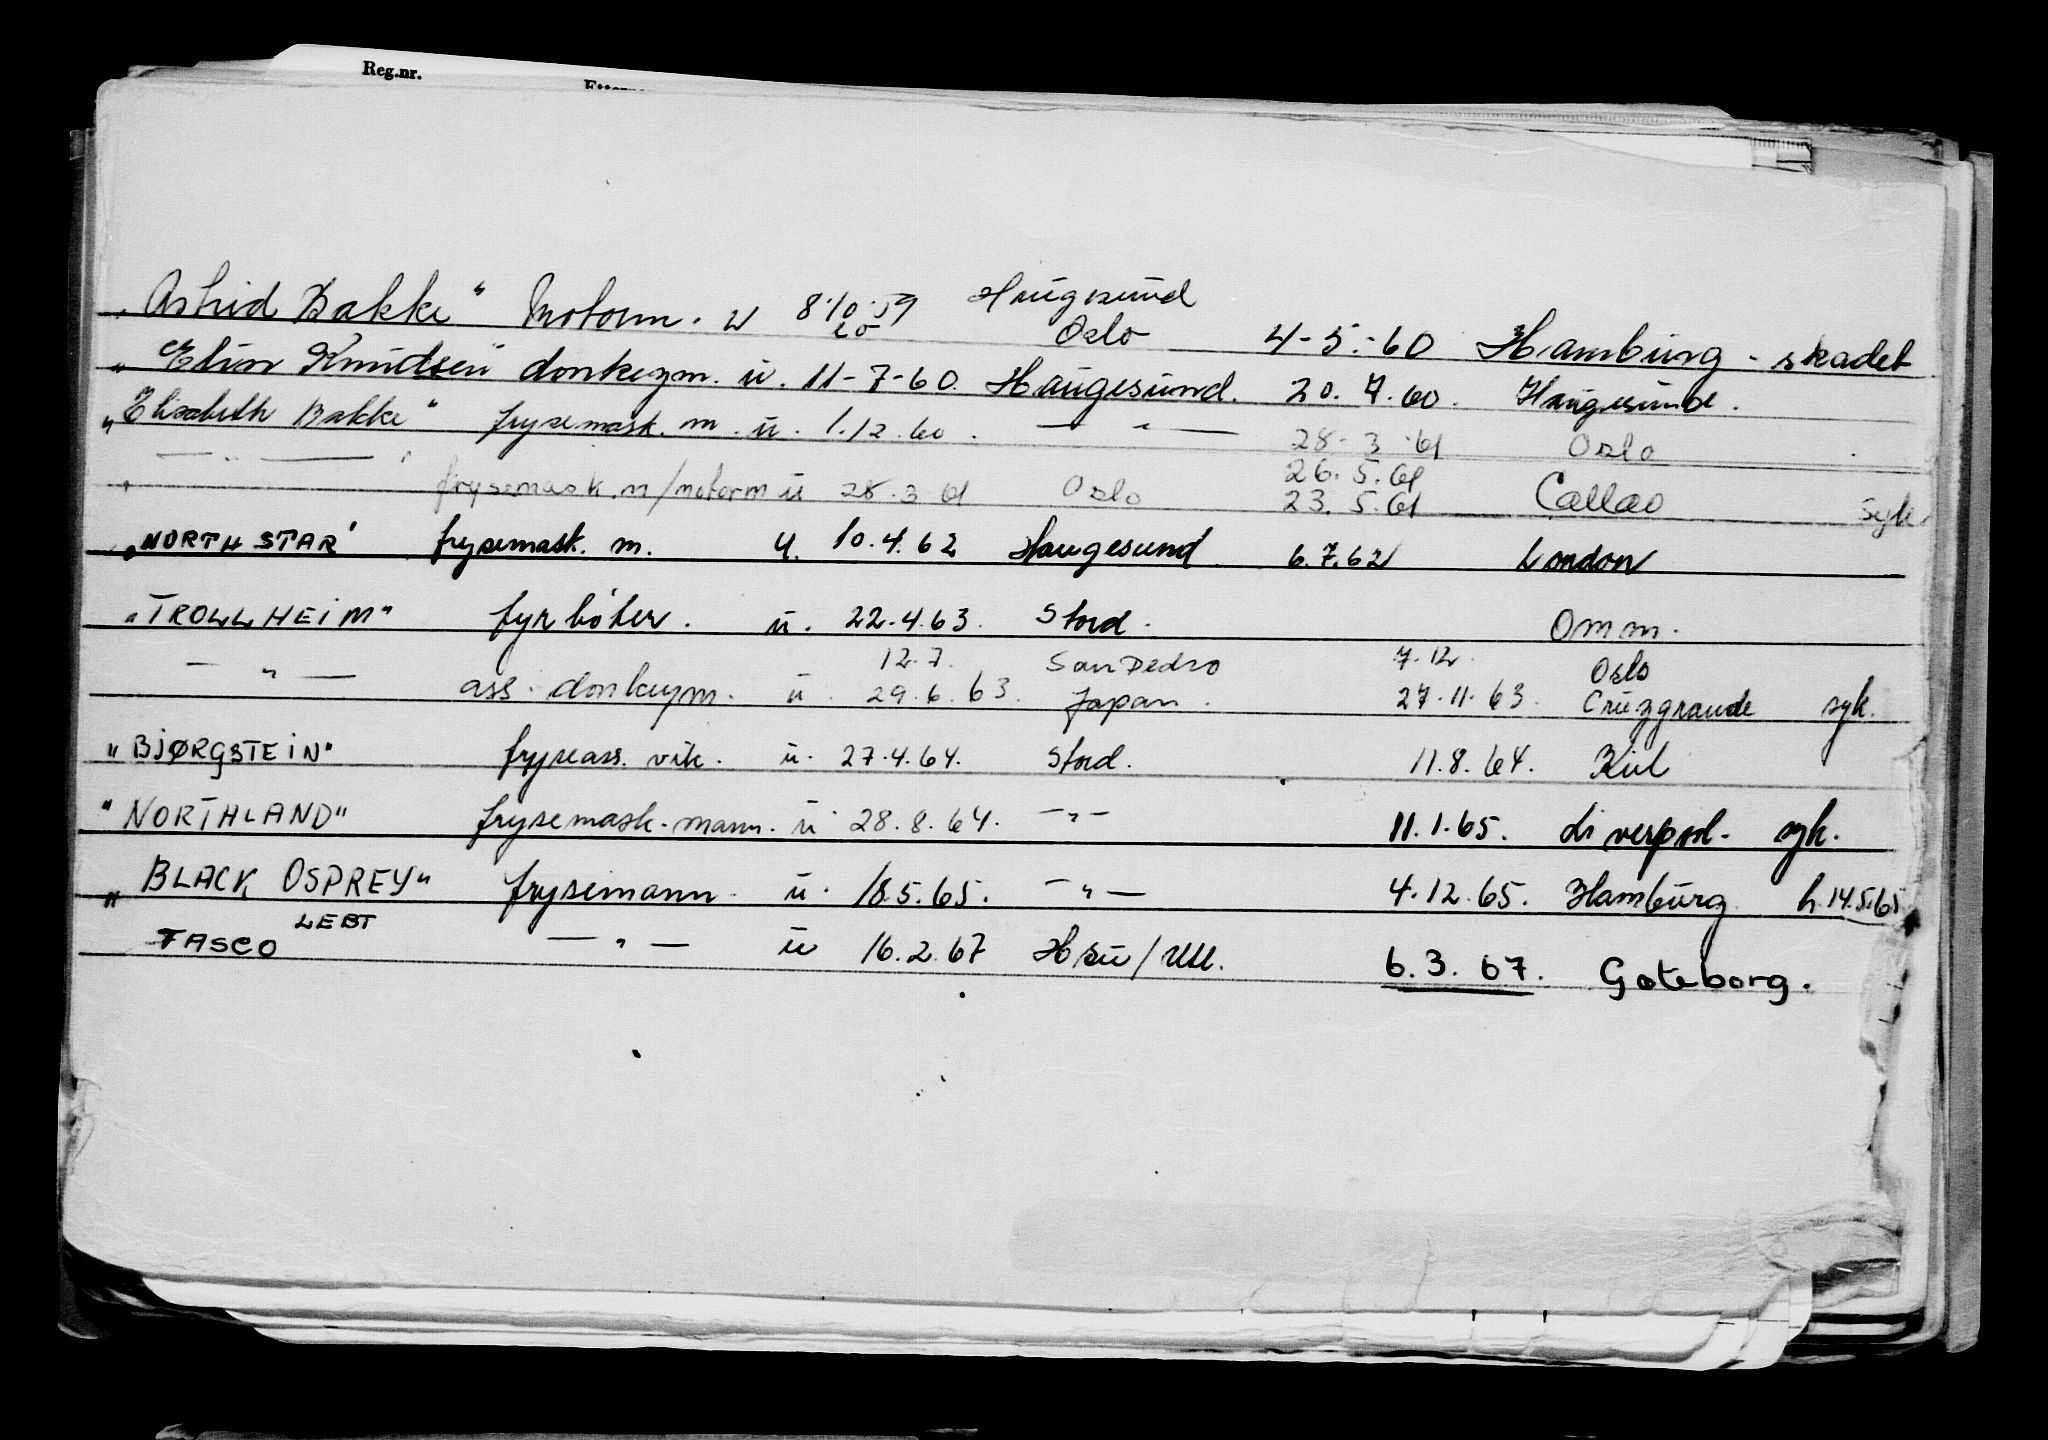 Reg.nr.
"Astrid Bakke" Motorm. u 8.10.59 Haugesund
20 Oslo 4-5-60 Hamburg - skadet
"Elin Knudsen donkeym. u. 11-7-60. Haugesund. 20.7.60. Haugesund.
"Elisabeth Bakke" frysemask.m. u. 1.12.60. — " — 28-3-61 Oslo
— " — frysemask.m/motorm u 28.3 61 Oslo 26.5.61 23.5.61 Callao Syk
"NORTH STAR" frysemask. m. u. 10.4.62 Haugesund 6.7.62 London
"TROLLHEIM" fyrbøter. u. 22.4.63. Stord. Omm.
12.7. San Pedro 7.12. Oslo
— " — ass. donkeym. u. 29.6.63. Japan. 27.11.63. Cruzgrande syk.
"BJØRGSTEIN" fryseass. vik. u. 27.4.64. Stord. 11.8.64. Kiel
"NORTHLAND" frysemask.mann. u 28.8.64. — " — 11.1.65. Liverpool- syk.
"BLACK OSPREY" frysemann. u. 18.5.65. — " — 4.12.65. Hamburg h.14.5.65
LEBT
FASCO — " — u 16.2.67 Hsu/Ull. 6.3.67. Goteborg.